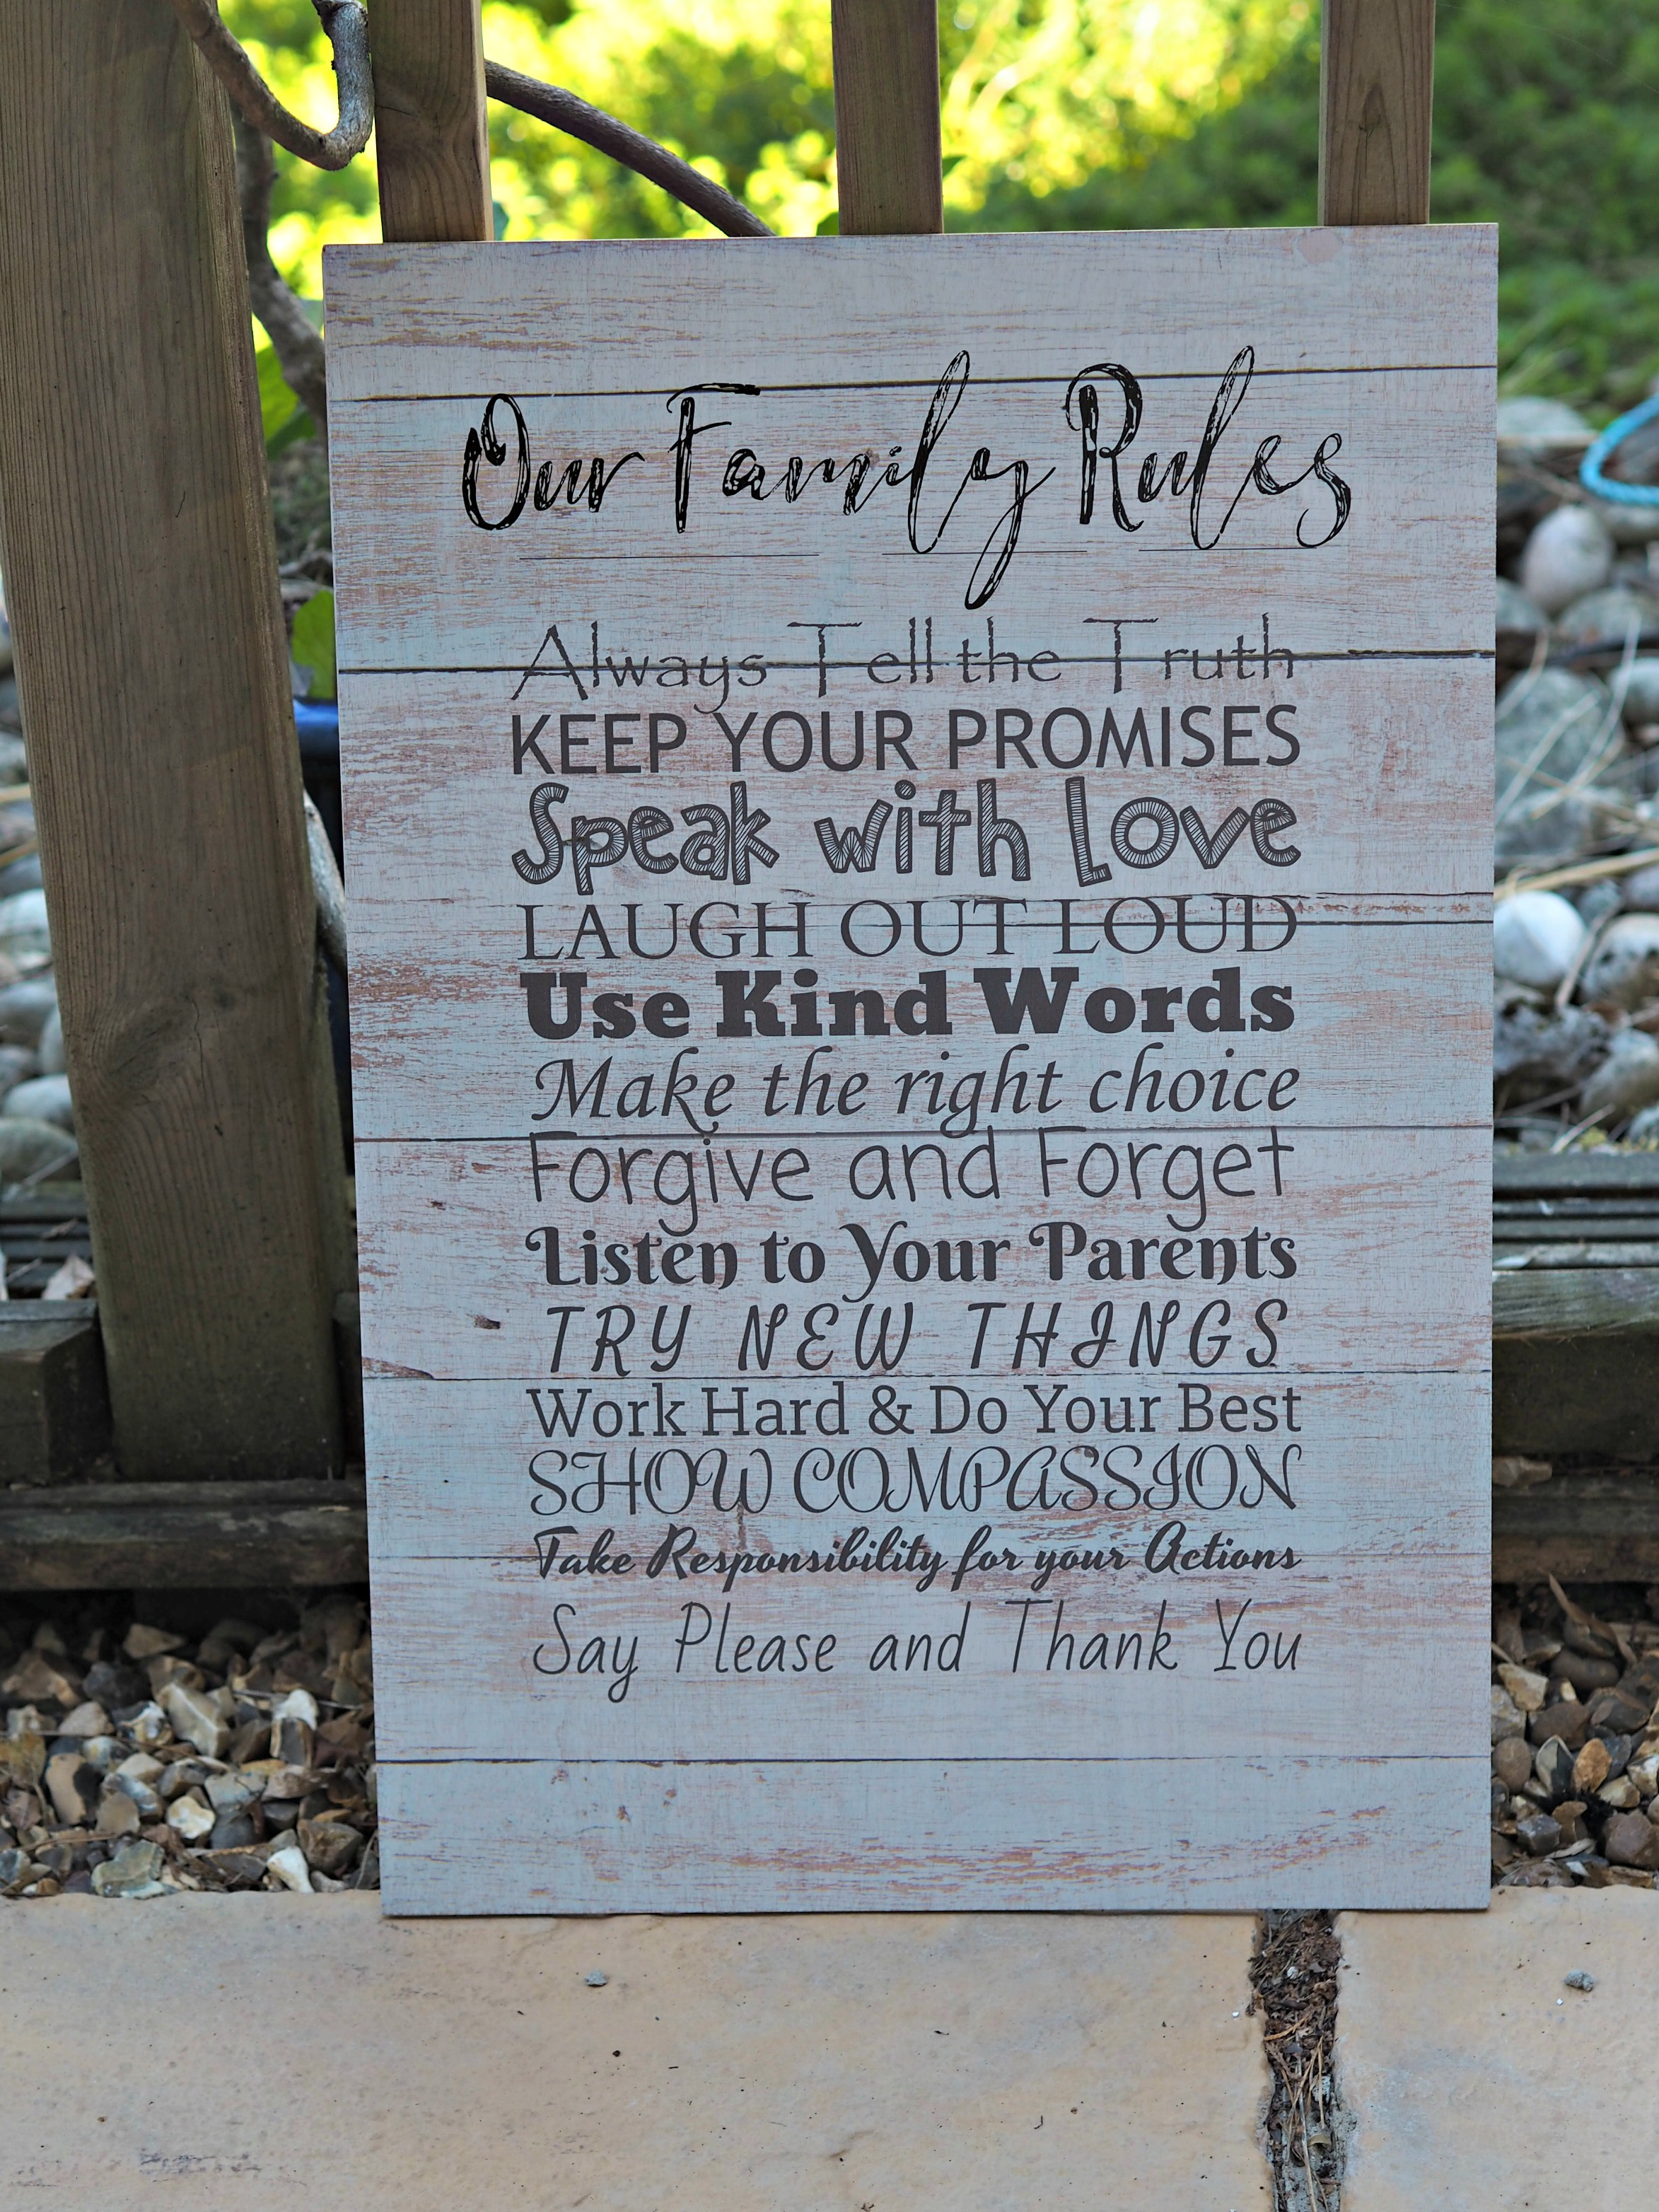 Our Family Rules
Always Tell the Truth
KEEP YOUR PROMISES
Speak with Love
LAUGH OUT LOUD
Use Kind Words
Make the right choice
Forgive and Forget
Listen to Your Parents
TRY NEW THINGS
Work Hard & Do Your Best
SHOW COMPASSION
Take Responsibility for your Actions
Say Please and Thank You